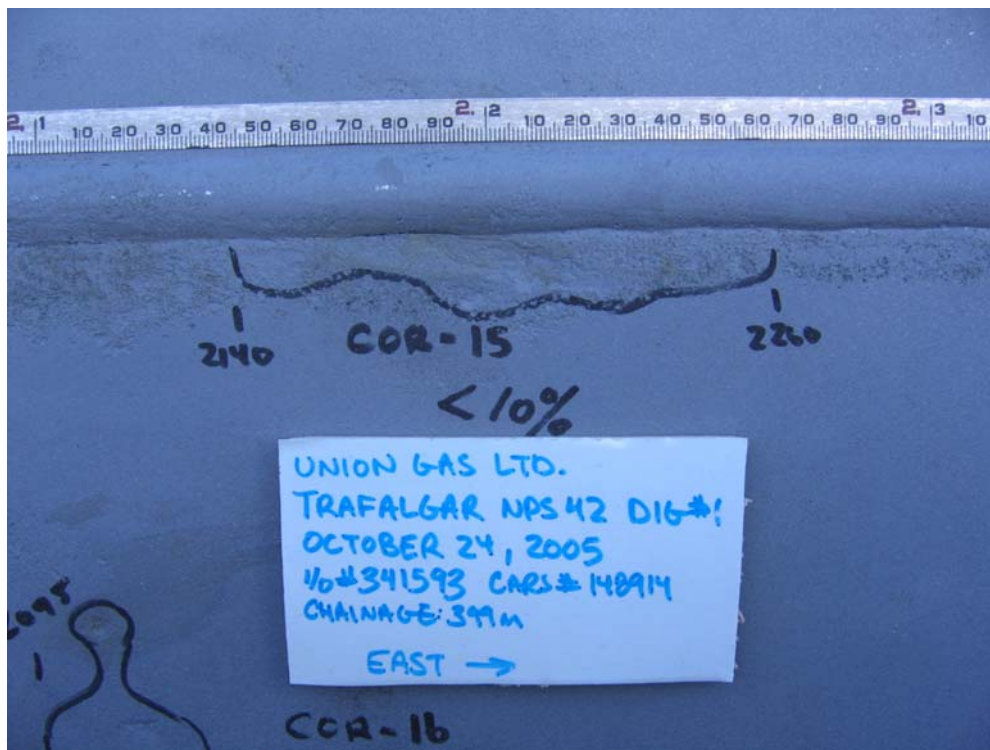 2. 1 10 20 30 40 50 60 70 80 90 2. 2 10 20 30 40 50 60 70 80 90 2. 3 10
2140 COR-15 2260
<10%
UNION GAS LTD.
TRAFALGAR NPS 42 DIG#1
OCTOBER 24, 2005
I/O#341593 CARS# 148914
CHAINAGE: 399m
EAST →
2095
COR-16